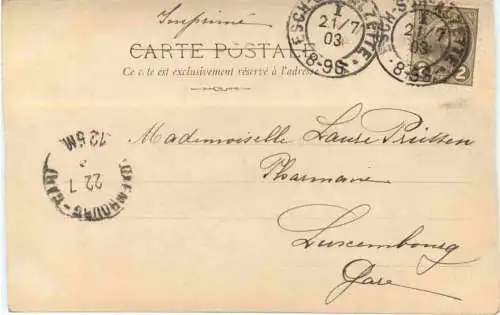 Imprimé
ESCH-S-ALZETTE
1
21/7
03
8-9S
ESCH-S-ALZETTE
1
21/7
03
8-9S
2
CARTE POSTALE
Ce côté est exclusivement réservé à l'adresse
Mademoiselle Laure Prüssen
Pharmacie
Luxembourg
Gare
LUXEMBOURG-GARE
22 7